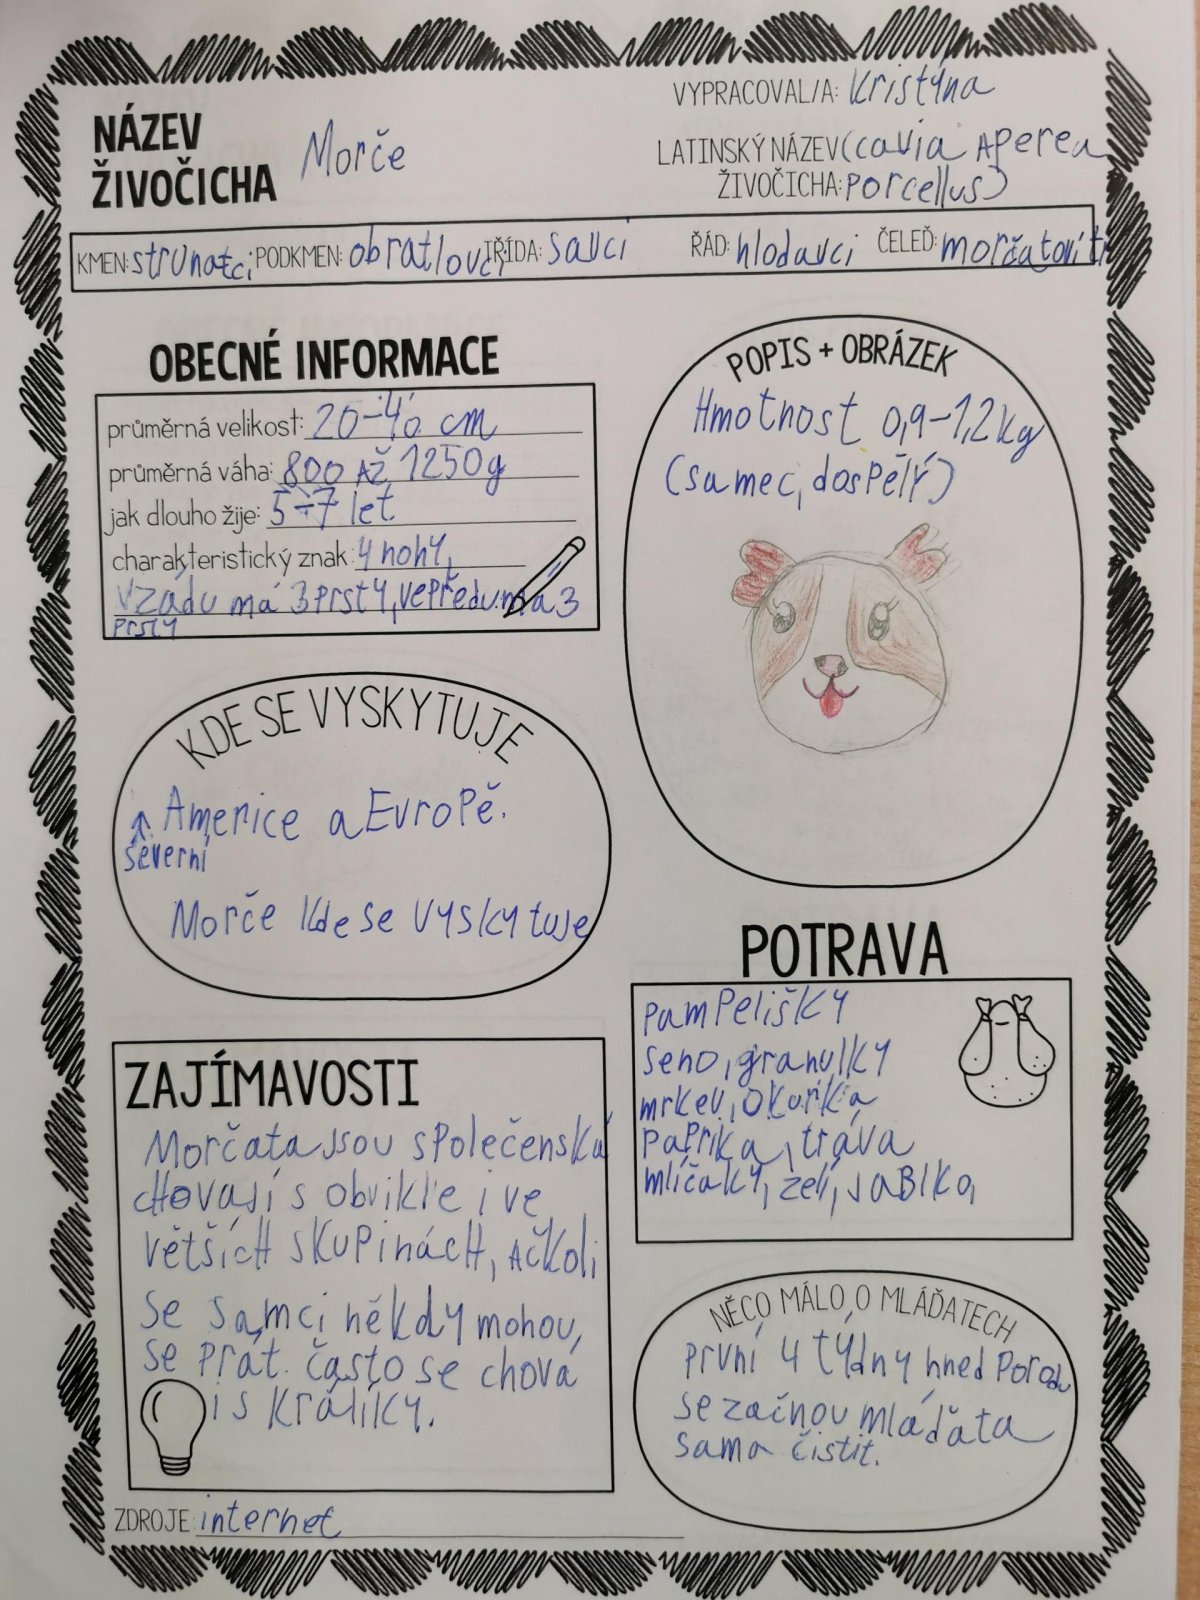 VYPRACOVAL/A: Kristýna
NÁZEV ŽIVOČICHA Morče
LATINSKÝ NÁZEV (cavia Aperea
ŽIVOČICHA: Porcellus)
KMEN: strunatci PODKMEN: obratlovci TŘÍDA: savci ŘÁD: hlodavci ČELEĎ: morčatovití
OBECNÉ INFORMACE
průměrná velikost: 20-40 cm
průměrná váha: 800 Až 1250g
jak dlouho žije: 5-7 let
charakteristický znak: 4 nohy,
Vzádu má 3 Prsty, vepředu má 3
Prsty
POPIS + OBRÁZEK
Hmotnost 0,9-1,2kg
(samec, dospělý)
KDE SE VYSKYTUJE
Americe a Evropě.
Severní
Morče kde se vyskytuje
POTRAVA
Pampelišky
seno, granulky
mrkev, okurka
Paprika, tráva
mlíčaky, zelí, JABlko,
ZAJÍMAVOSTI
Morčata jsou společenská
cHovají s obvikle i ve
větších skupinách, Ačkoli
se samci někdy mohou,
se prát. často se chová
i s králíky.
NĚCO MÁLO O MLÁĎATECH
První 4 týdny hned Porodu
se začnou mláďata
sama čistit.
ZDROJE: internet